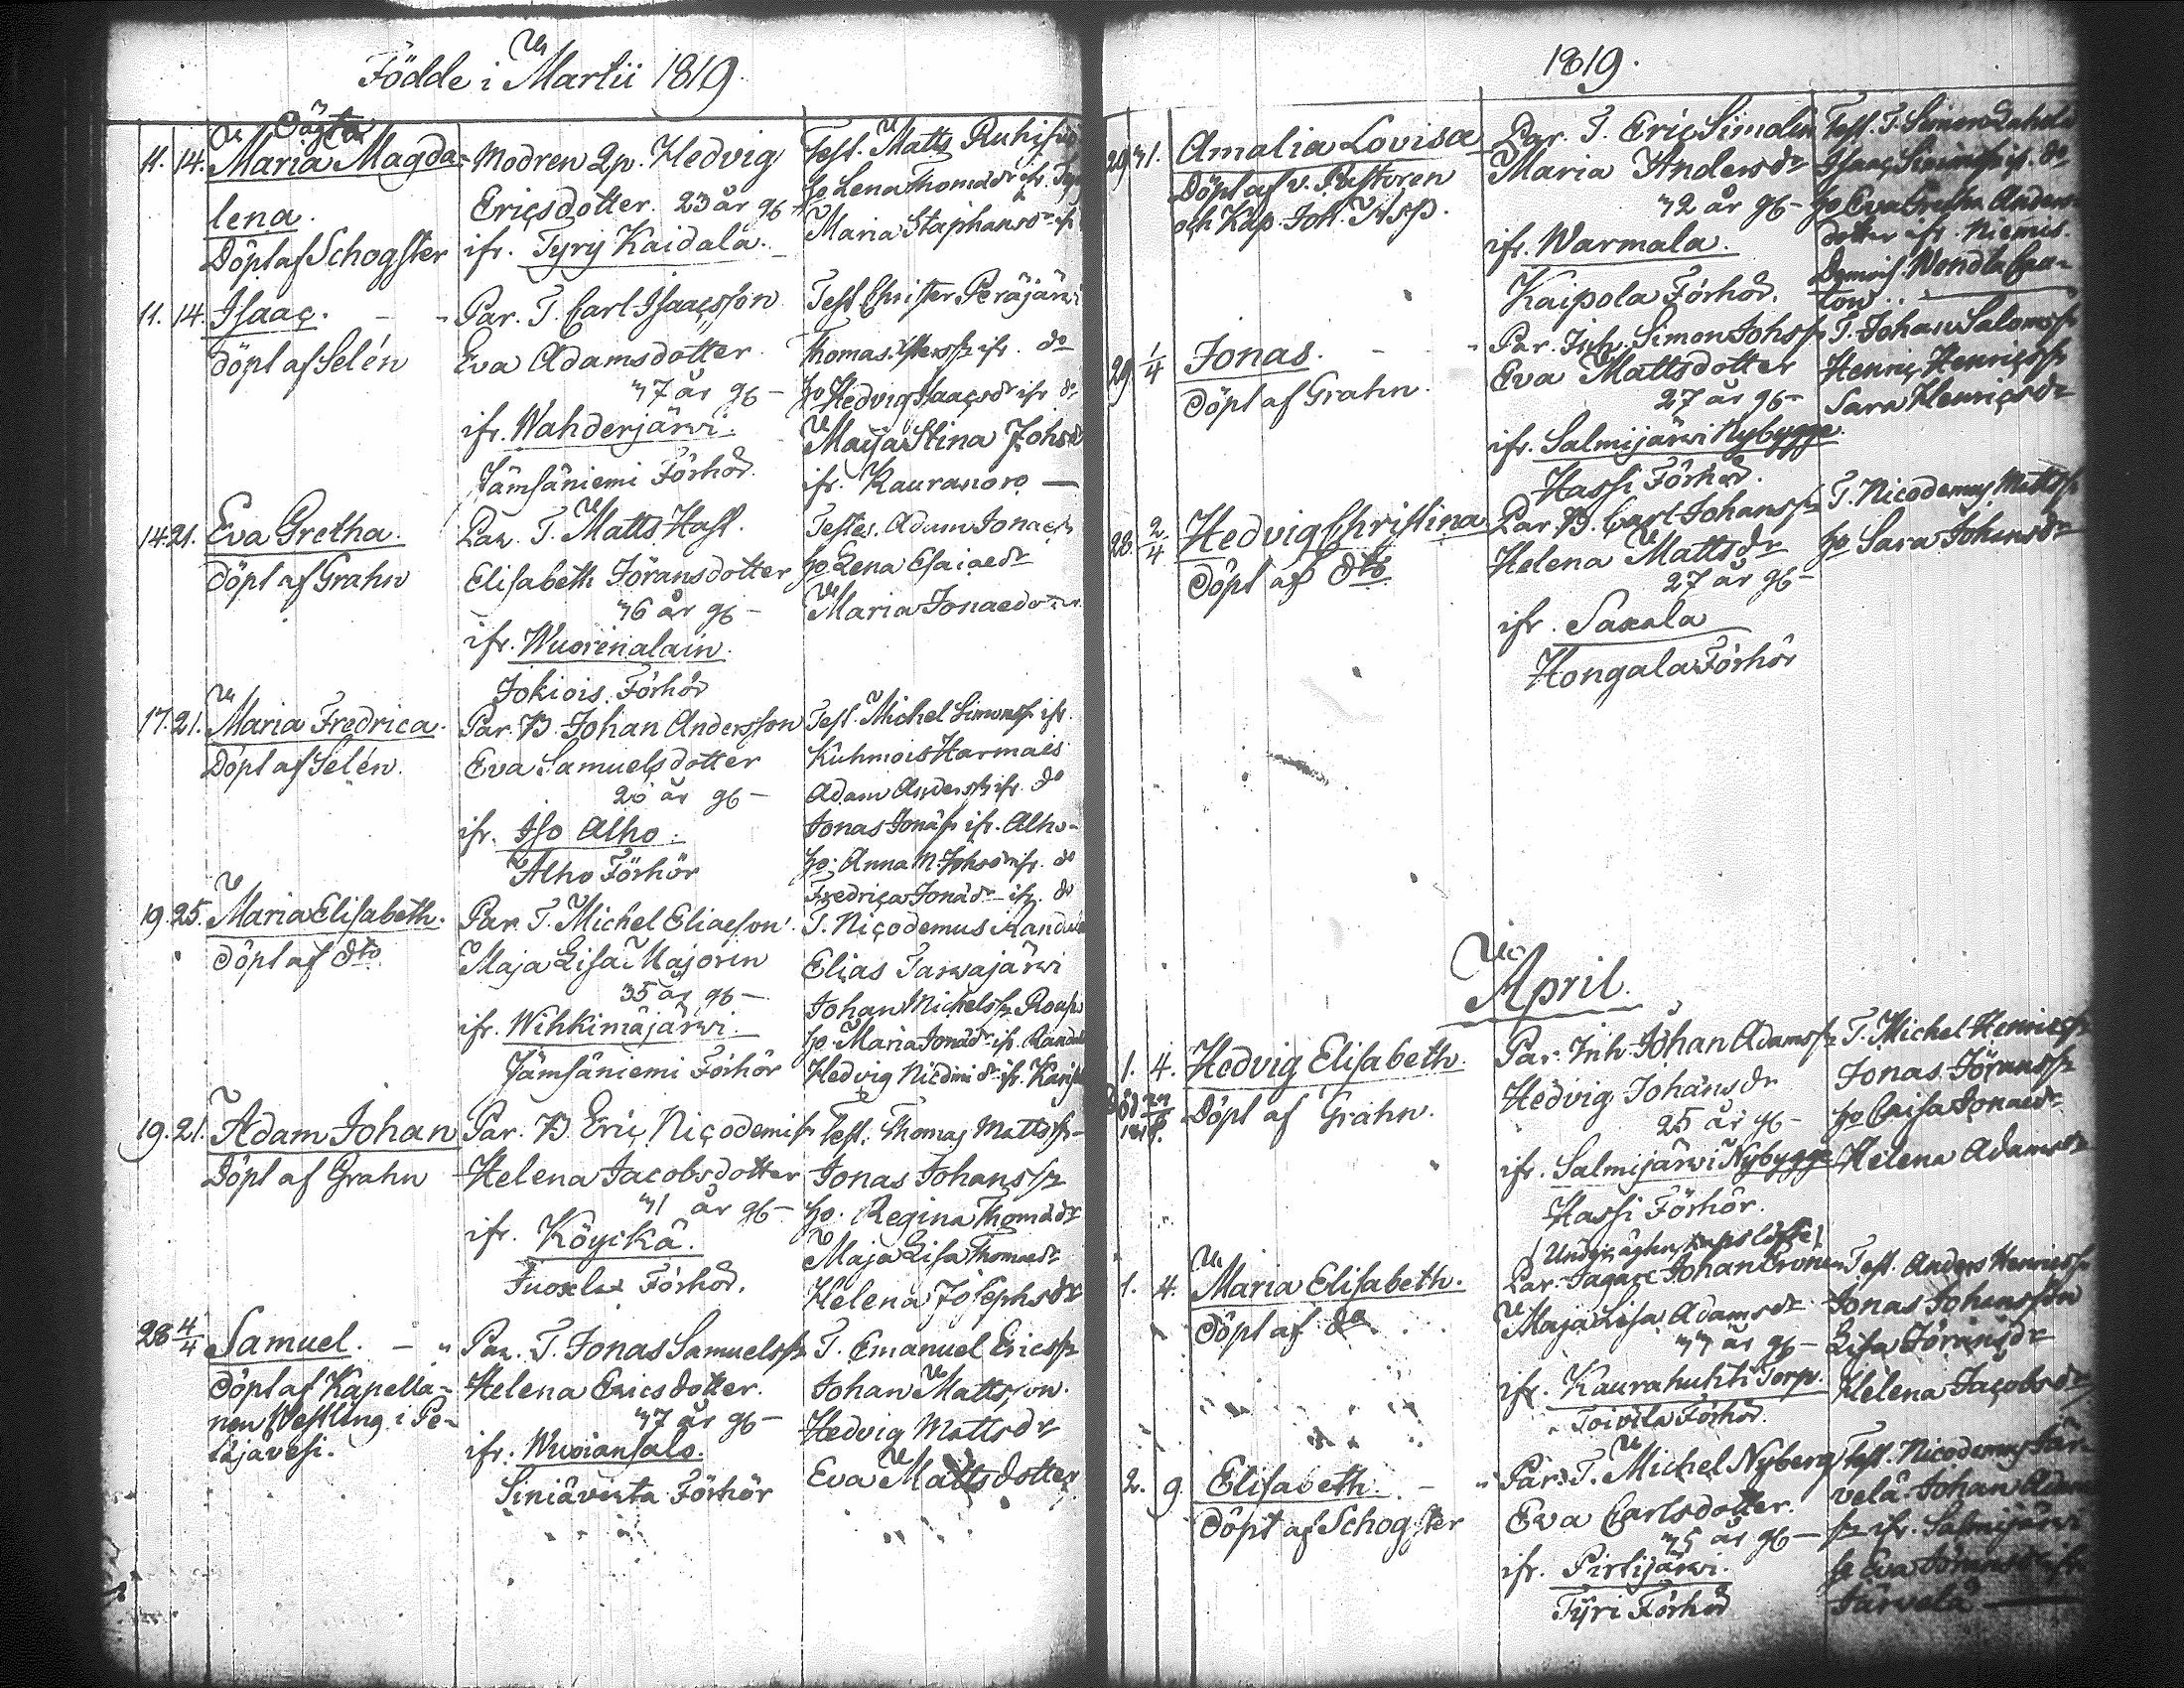 Födde i Martii 1819.
Oägta
11. 14. Maria Magda-
lena.
Döpt af Schogster
Modren Qp. Hedvig
Ericsdotter. 23 år gb
ifr. Tyry Kaidala.
Test. Matts Ruhis
ho Lena Thomædr ifr.
Maria Staphansdr ifr
11. 14. Isaac.
Döpt af Selén
Par. T. Carl Isaacsson
Eva Adamsdotter.
37 år gb
ifr. Wahderjärvi.
Jämsäniemi Förhör.
Test Christer Peräjärvi
Thomas ifr. do
ho Hedvig Isaacsdr ifr do
Maija Stina Johsdr
ifr. Kauranoro
14. 21. Eva Gretha.
Döpt af Grahn
Par. T. Matts Hast.
Elisabeth Jöransdotter
36 år gb
ifr. Wuorenalain.
Jokiois Förhör
Testes. Adam Jonaes
ho Lena Esaiaedr
Maria Jonaedotter
17. 21. Maria Fredrica.
Döpt af Selén.
Par. B. Johan Andersson
Eva Samuelsdotter
26 år gb
ifr. Iso Alho.
Alho Förhör
Test. Michel Simonss. ifr.
Kuhmois Harmais
Adam Anderss. ifr. do
Jonas Jonæss. ifr. Alho
ho. Anna M. Johsdr ifr. do
Fredrica Jonædr ifr. do
19. 25. Maria Elisabeth.
Döpt af dto
Par. T. Michel Eliaeson
Maja Lisa Majorin
35 år gb
ifr. Wihkimäjärvi.
Jämsäniemi Förhör
T. Nicodemus
Elias Tarvajärvi
Johan Michelss.
ho. Maria Jonædr ifr.
Hedvig Nicdmidr ifr.
19. 21. Adam Johan
Döpt af Grahn
Par. B Eric Nicodemiss.
Helena Jacobsdotter
31 år gb
ifr. Köyckä.
Juoxla Förhör.
Test. Thomas Mattss.
Jonas Johanss.
ho. Regina Thomædr
Maja Lisa Thomædr
Helena Josephsdr
28 4/4 Samuel.
Döpt af Kapella-
nen Westling i Pe-
täjävesi.
Par. T. Jonas Samuelss.
Helena Ericsdotter.
37 år gb
ifr. Wuoiansalo.
Siniävirta Förhör
T. Emanuel Ericss.
Johan Mattsson.
Hedvig Mattsdr
Eva Mattsdotter
1819.
29 31. Amalia Lovisa
Döpt af v. Pastoren
och Kap. Joh.
Par. T. Eric Simolin
Maria Andersdr
32 år gb
ifr. Warmala.
Kaipola Förhör.
Test. T. Simon
Isaac ifr. do
ho Eva Gretha Anders-
dotter ifr. Niemis
29 1/4 Jonas.
Döpt af Grahn.
Par. Inh. Simon Johss.
Eva Mattsdotter
27 år gb
ifr. Salmijärvi Nybygge
Hassi Förhör.
T. Johan Salomss.
Henric Henricss.
Sara Henricsdr
28. 2/4 Hedvig Christina
Döpt af dto
Par. B. Carl Johanss.
Helena Mattsdr
27 år gb
ifr. Saxala
Hongala Förhör
T. Nicodemus Mattss.
ho Sara Johansdr
April.
1. 4. Hedvig Elisabeth.
Döpt af Grahn.
Par. Inh. Johan Adamss.
Hedvig Johansdr
25 år gb
ifr. Salmijärvi Nybygge
Hassi Förhör.
T. Michel Henricss.
Jonas Jöranss.
ho Caisa Jonaedr
Helena Adamsdr
1. 4. Maria Elisabeth.
Döpt af do
Par. Johan
Maja Lisa Adamsdr
33 år gb
ifr. Kaurahuhti Torp.
Toivila Förhör.
Test. Anders Henricss.
Jonas Johansson
Lisa Jöransdr
Helena Jacobsdr
2. 9 Elisabeth.
Döpt af Schogster
Par. T. Michel Nyberg
Eva Carlsdotter.
35 år gb
ifr. Pirtijärvi.
Tyri Förhör
Test. Nicodemus Jär-
velä. Johan
ifr. Salmijärvi
ho Eva
Järvelä